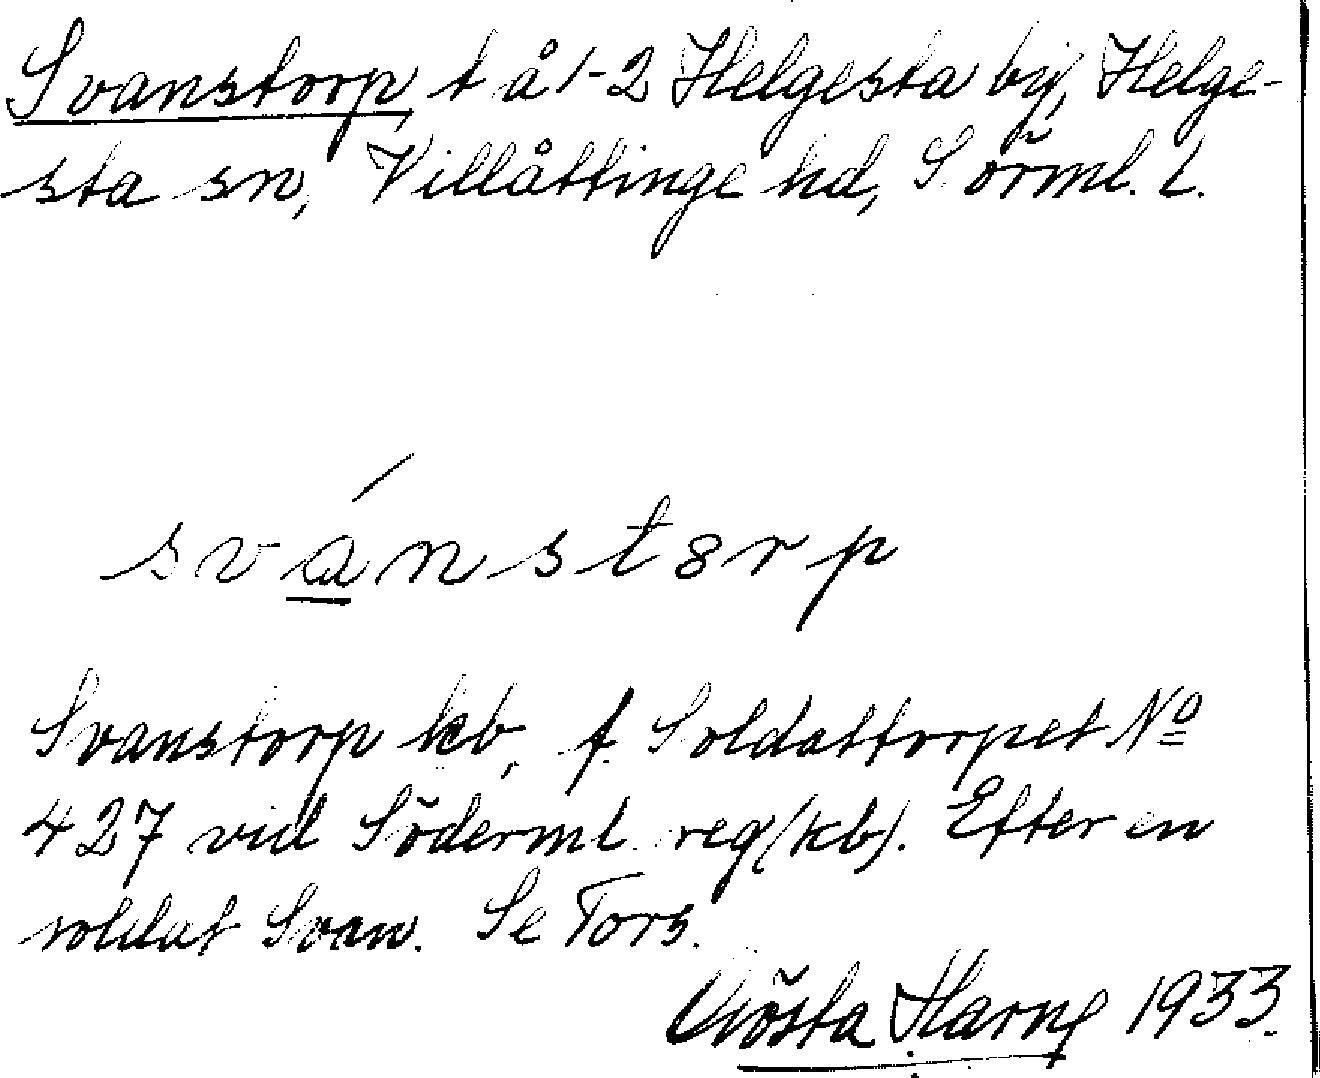 Svanstorp, t å 1-2 Helgesta by, Helge-
sta sn, Villåttinge hd, Sörml. L.
svánstorp
Svanstorp kb, f. Soldattorpet No
427 vid Söderml. reg (kb). Efter en
soldat Svan. Se Tors.
Gösta Harng 1933.